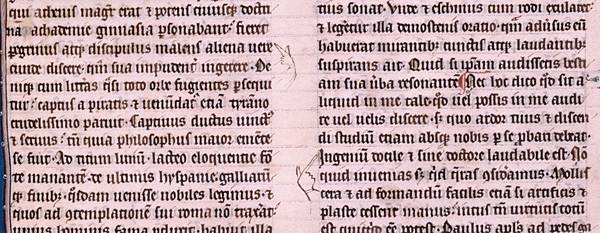 qui athenis magr̄ erat ⁊ potens cuiusqȝ doctri
nā achademie gimnasia ꝑsonabant. fieret
ꝑegrinus atqȝ discipulus malens aliena vere
cunde discere. qm̄ sua impudent̄ ingerere. De
niqȝ cum litt̄as q̄si toto orbe fugientes ꝑsequi
tur: captus a piratis ⁊ venūdat̄ etiā tyrāno
crudelissimo paruit. Captiuus vinct̄
⁊ seruus: tn̄ quia philosophus maior emēte
se fuit. Ad titum liuiū. lacteo eloquentie fō
te manantē. de ultimis hyspanie galliarū
qȝ finibȝ. q̄sdam uenisse nobiles legimus: ⁊
quos ad ꝯtemplationē sui roma nō traxāt:
unius hominis fama ꝑduxit. habuit illa
tius sonat. Vnde ⁊ eschinus cum rodi exularet:
⁊ legēt̄ur illa demostenis oratio. qm̄ adūsus eū
habuerat mirantibȝ cunctis atqȝ laudantibȝ
suspirans ait. Quid si ip̄am audissetis besti
am sua ūba resonantē. Nec hoc dico qd̓ sit a
liquid in me tale. qd̓ uel possis in me audi
re uel uelis discere. sȝ quo ardor tuus ⁊ discen
di studiū etiam absqȝ nobis ꝑ se ꝓbari debeat.
Ingeniū docile ⁊ sine doctore laudabile est. Nō
quid inuenias sȝ qd̓ q̄ras ꝯsidāmus. Mollis
cera ⁊ ad formandū facilis etiā si artificis ⁊
plaste cessent manus: intus tn̄ uirtute totū
est quicqd̓ eē potest. Paulus apl̄s ad pedes ga